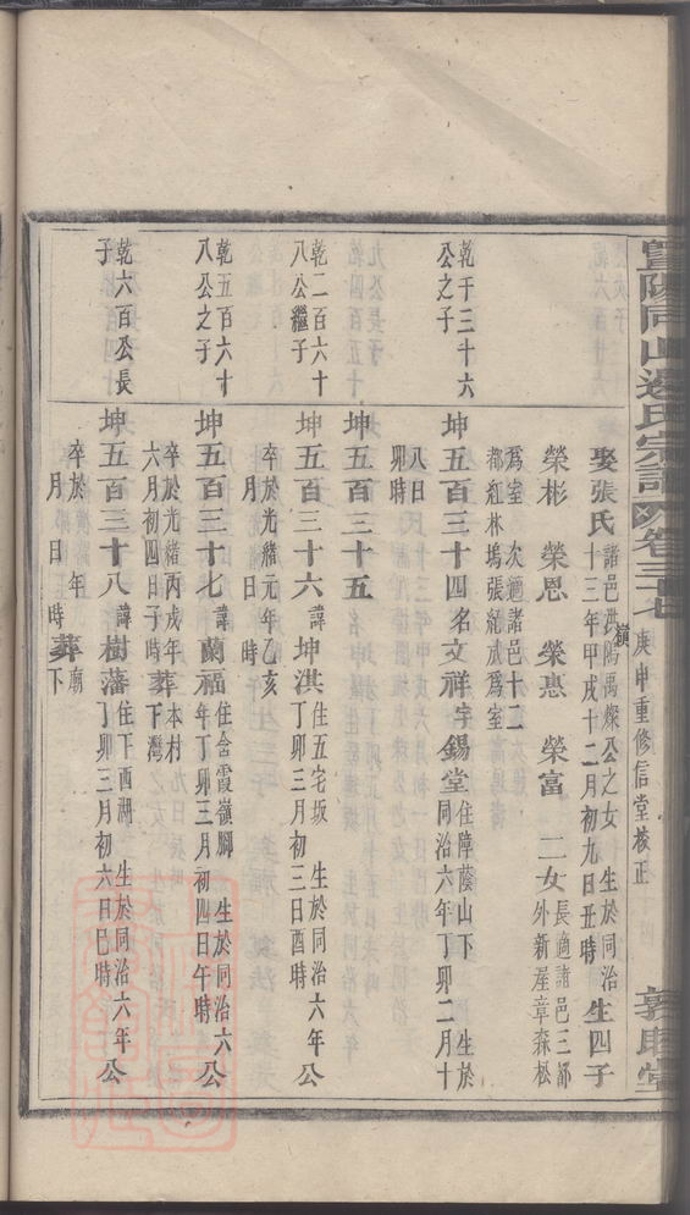 暨陽同山邊氏宗譜 卷三十七 庚申重修信堂校正 敦睦堂
娶張氏諸邑洪隖嶺禹燦公之女 生於同治十三年甲戌十二月初九日丑時 生四子
榮彬 榮恩 榮惠 榮富 二女長適諸邑三都外新屋章森松
爲室 次適諸邑十二都紅林塢張紀水爲室
乾千三十六公之子
坤五百三十四名文祥字錫堂住障蔭山下 生於同治六年丁卯二月十
八日卯時
坤五百三十五
乾二百六十八公繼子
坤五百三十六諱坤淇住五宅坂 生於同治六年丁卯三月初三日酉時 公
卒於光緒元年乙亥 月 日 時
乾五百六十八公之子
坤五百三十七諱蘭福住含霞嶺腳 生於同治六年丁卯三月初四日午時 公
卒於光緒丙戌年六月初四日子時 葬本村下灣
乾六百公長子
坤五百三十八諱樹藩住下西湖 生於同治六年丁卯三月初六日巳時 公
卒於 年 月 日 時 葬廟下